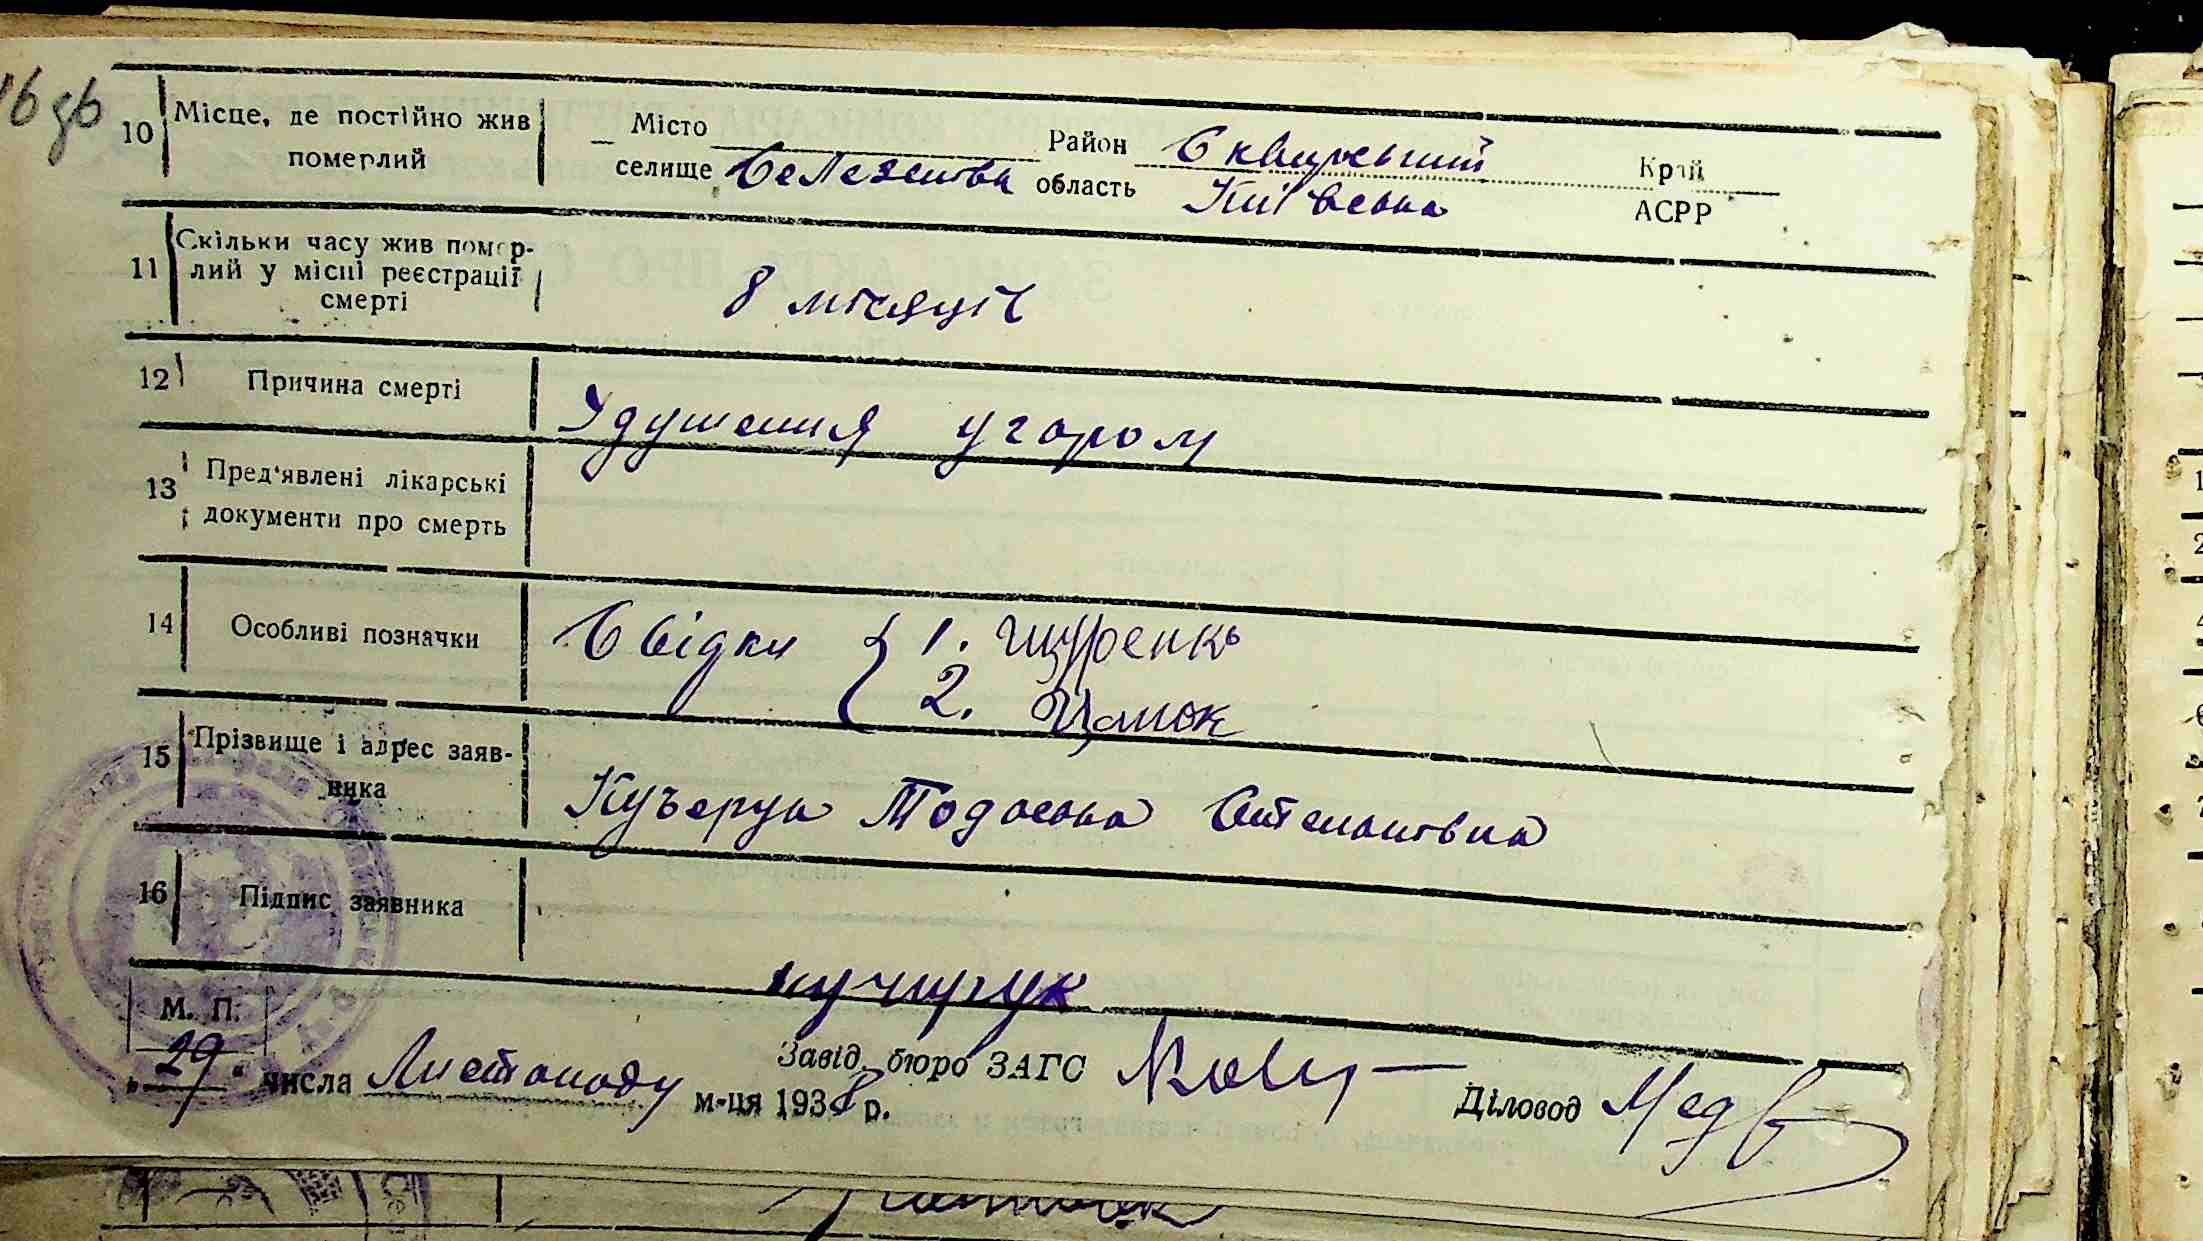 16 зв
10 Місце, де постійно жив померлий
Місто Район Сквирський Край
селище Селезенівка область Київська АСРР
11 Скільки часу жив помер-
лий у місці реєстрації
смерті
8 місяців
12 Причина смерті Удушення угаром
13 Пред'явлені лікарські
документи про смерть
14 Особливі позначки Свідки { 1. Щуренко
2.
15 Прізвище і адрес заяв-
ника
Кучерук Тодоська Степановна
16 Підпис заявника
кучирук
М. П.
„29“ числа Листопаду м-ця 1938 р. Завід. бюро ЗАГС Діловод Медв